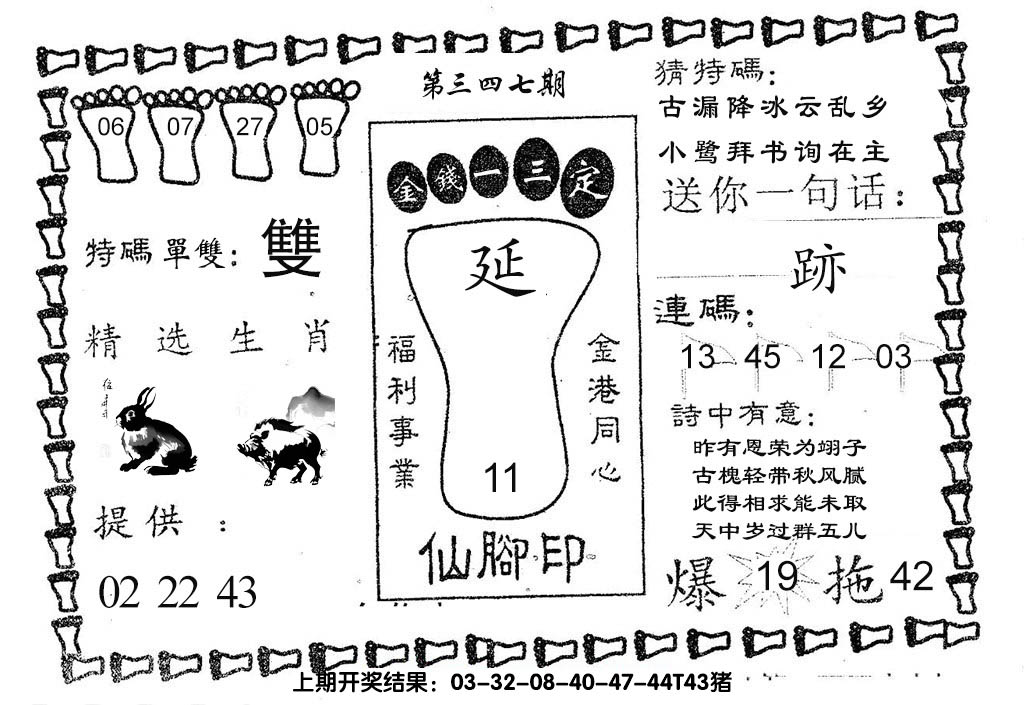 第三四七期
06 07 27 05
特碼單雙：雙
精选生肖
提供：
02 22 43
金錢一三定
延
福利事業
金港同心
11
仙腳印
猜特碼：
古漏降冰云乱乡
小鹭拜书询在主
送你一句话：
跡
連碼：
13 45 12 03
詩中有意：
昨有恩荣为翊子
古槐轻带秋风腻
此得相求能未取
天中岁过群五儿
爆 19 拖 42
上期开奖结果：03-32-08-40-47-44T43猪